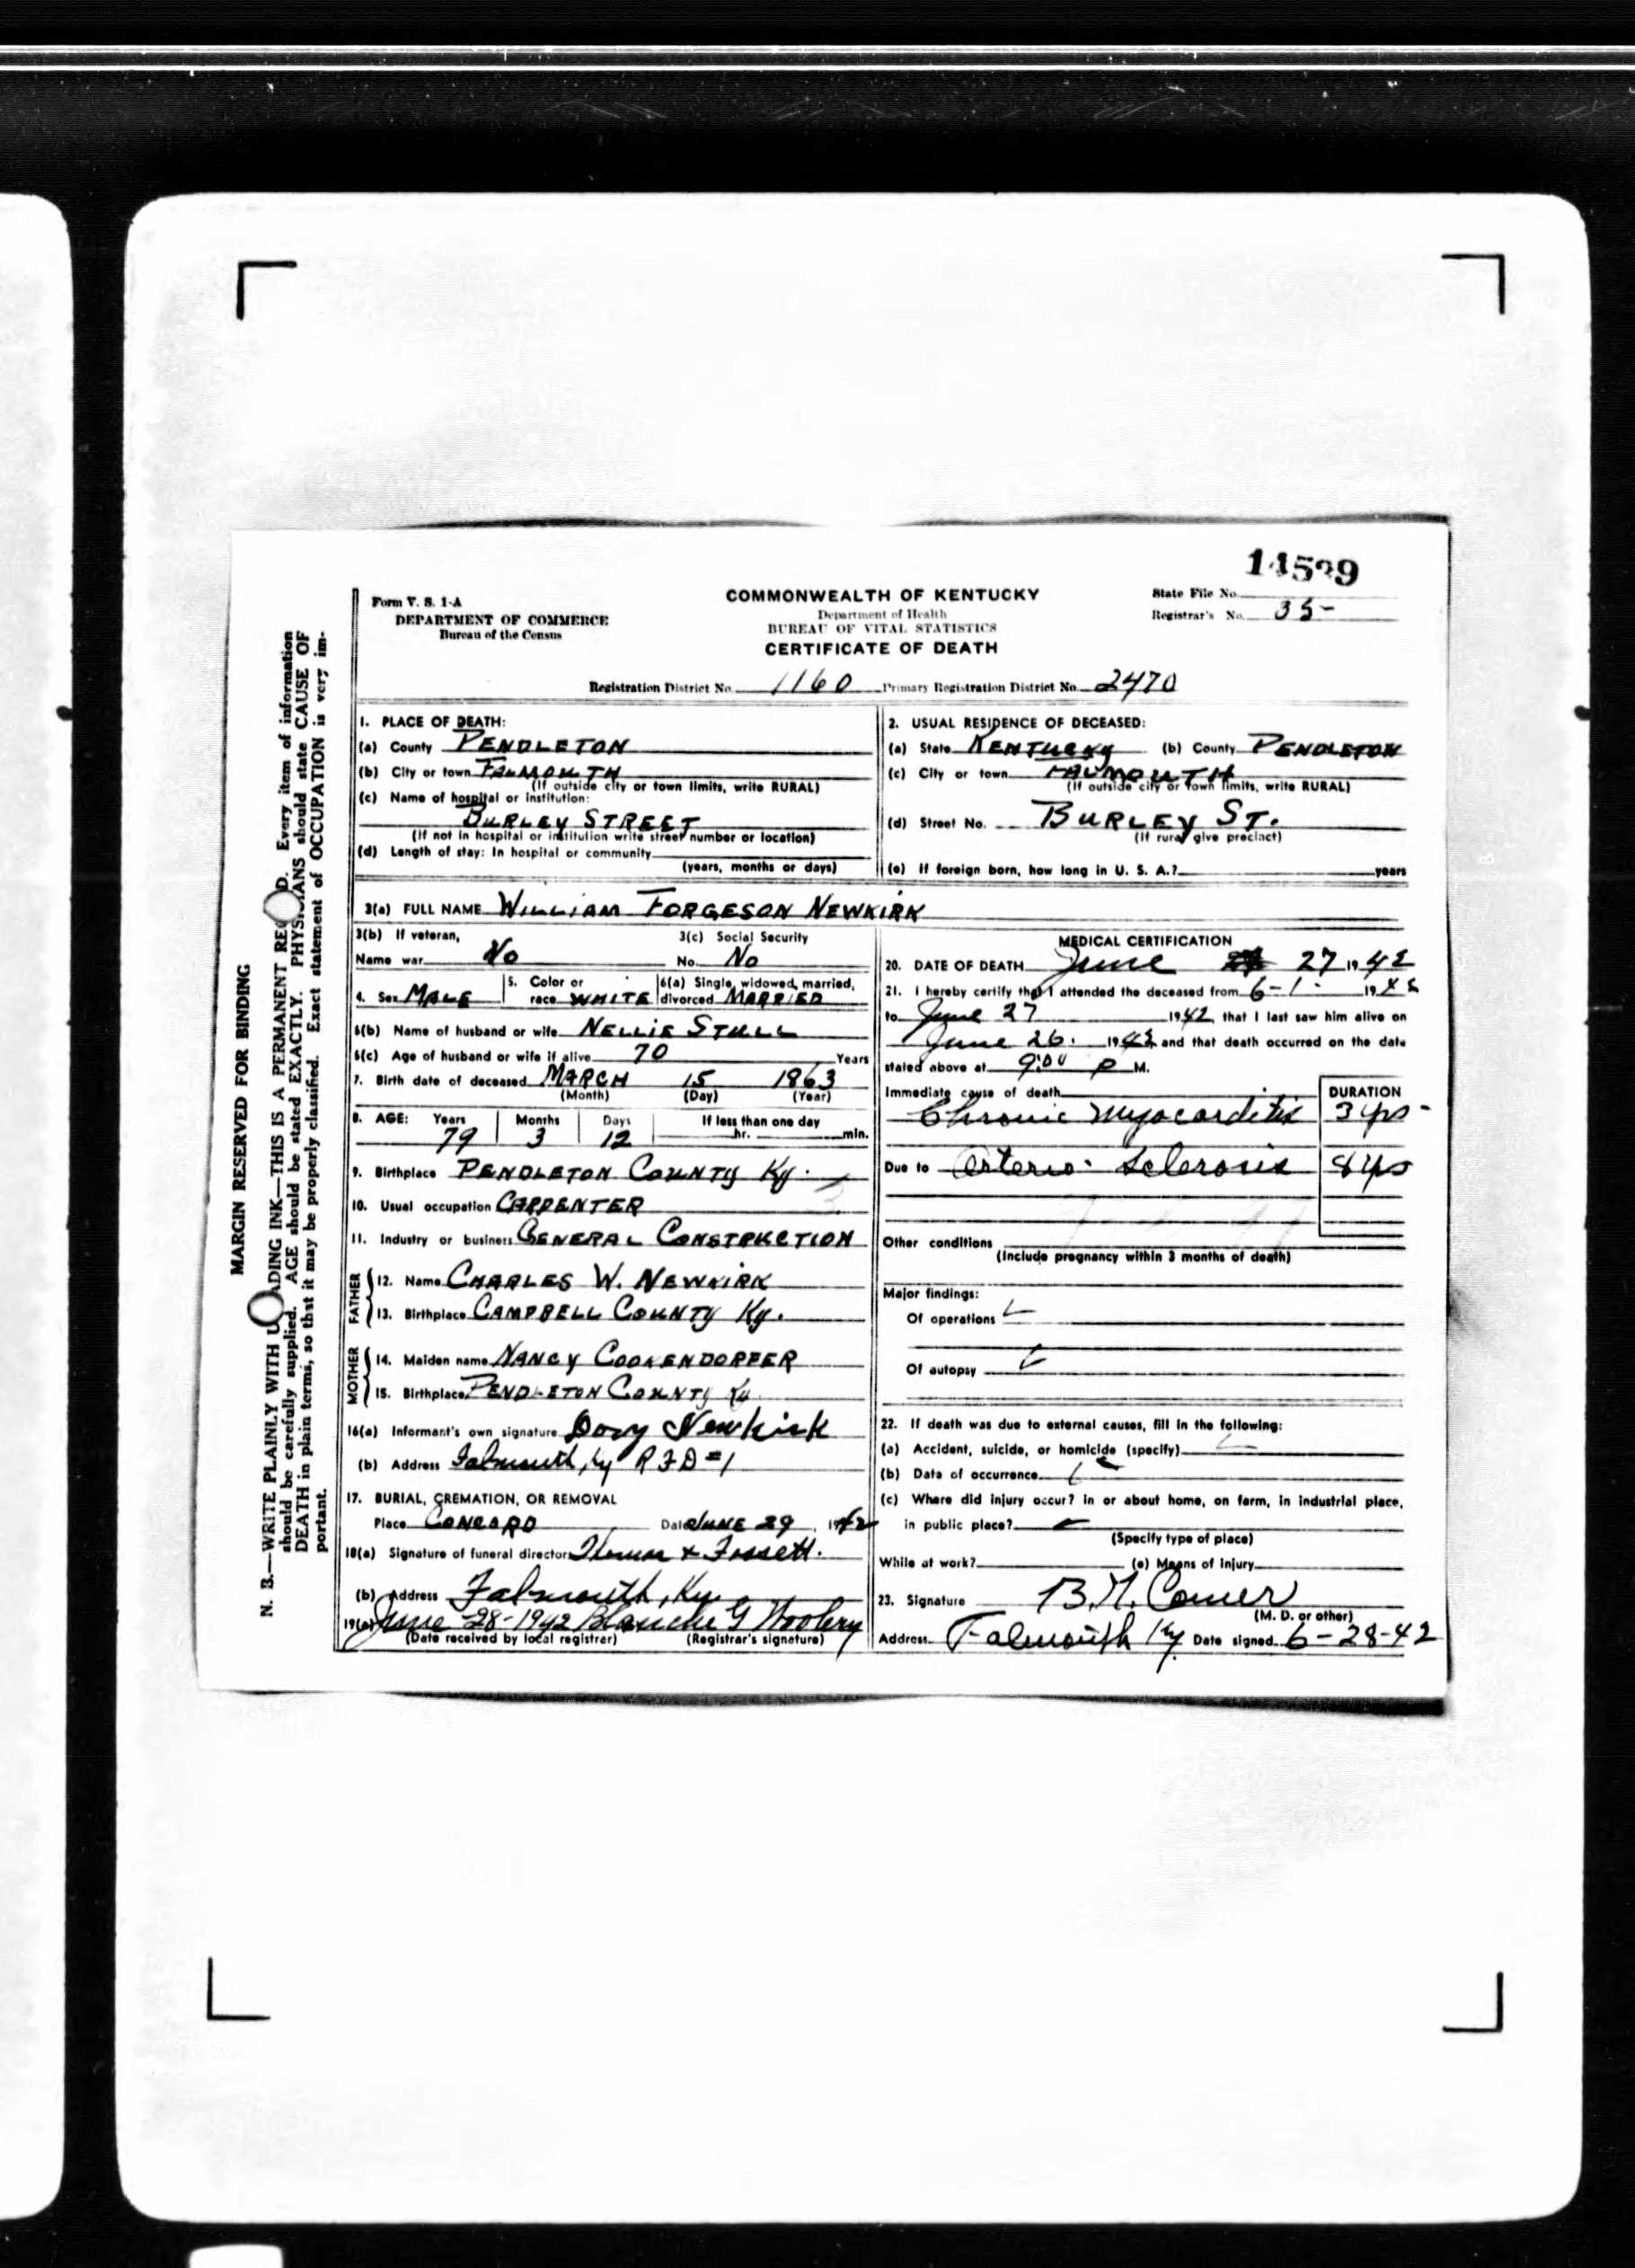 Form V. S. 1-A
DEPARTMENT OF COMMERCE
Bureau of the Census
COMMONWEALTH OF KENTUCKY
Department of Health
BUREAU OF VITAL STATISTICS
CERTIFICATE OF DEATH
State File No.
Registrar's No. 35-
Registration District No. 1160 Primary Registration District No. 2470
1. PLACE OF DEATH:
(a) County PENDLETON
(b) City or town FALMOUTH
(If outside city or town limits, write RURAL)
(c) Name of hospital or institution:
BURLEY STREET
(If not in hospital or institution write street number or location)
(d) Length of stay: In hospital or community
(years, months or days)
2. USUAL RESIDENCE OF DECEASED:
(a) State KENTUCKY (b) County PENDLETON
(c) City or town FALMOUTH
(If outside city or town limits, write RURAL)
(d) Street No. BURLEY ST.
(If rural give precinct)
(e) If foreign born, how long in U. S. A.? years
3(a) FULL NAME WILLIAM FORGESON NEWKIRK
3(b) If veteran,
Name war No
3(c) Social Security
No. No
4. Sex MALE
5. Color or
race WHITE
6(a) Single, widowed, married,
divorced MARRIED
6(b) Name of husband or wife NELLIE STULL
6(c) Age of husband or wife if alive 70 Years
7. Birth date of deceased MARCH 15 1863
(Month) (Day) (Year)
8. AGE: Years Months Days If less than one day
79 3 12 hr. min.
9. Birthplace PENDLETON COUNTY Ky.
10. Usual occupation CARPENTER
11. Industry or business GENERAL CONSTRUCTION
FATHER
12. Name CHARLES W. NEWKIRK
13. Birthplace CAMPBELL COUNTY Ky.
MOTHER
14. Maiden name NANCY COOKENDORFER
15. Birthplace PENDLETON COUNTY Ky
16(a) Informant's own signature Dory Newkirk
(b) Address Falmouth, Ky R F D #1
17. BURIAL, CREMATION, OR REMOVAL
Place CONCORD Date JUNE 29, 1942
18(a) Signature of funeral director & Fossett.
(b) Address Falmouth, Ky.
19(a) June 28-1942 Blanche G Woolery
(Date received by local registrar) (Registrar's signature)
MEDICAL CERTIFICATION
20. DATE OF DEATH June 27 1942
21. I hereby certify that I attended the deceased from 6-1- 19
to June 27 1942, that I last saw him alive on
June 26. 1942 and that death occurred on the date
stated above at 9:00 P M.
Immediate cause of death DURATION
Chronic Myocarditis 3 yrs -
Due to Arterio-Sclerosis 8 yrs
Other conditions
(Include pregnancy within 3 months of death)
Major findings:
Of operations
Of autopsy
22. If death was due to external causes, fill in the following:
(a) Accident, suicide, or homicide (specify)
(b) Date of occurrence
(c) Where did injury occur? in or about home, on farm, in industrial place,
in public place?
(Specify type of place)
While at work? (e) Means of injury
23. Signature B. N. Comer
(M. D. or other)
Address Falmouth Ky Date signed 6-28-42
MARGIN RESERVED FOR BINDING
N. B.—WRITE PLAINLY WITH U ADING INK—THIS IS A PERMANENT RE D. Every item of information
should be carefully supplied. AGE should be stated EXACTLY. PHYSICIANS should state CAUSE OF
DEATH in plain terms, so that it may be properly classified. Exact statement of OCCUPATION is very im-
portant.